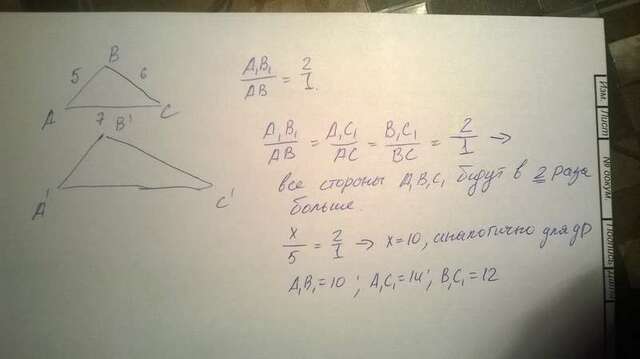 B
5 6
A C
7
B'
A' C'
A₁B₁/AB = 2/1.
A₁B₁/AB = A₁C₁/AC = B₁C₁/BC = 2/1 →
все стороны A₁B₁C₁ будут в 2 раза
больше.
x/5 = 2/1 → x=10, аналогично для др
A₁B₁=10; A₁C₁=14; B₁C₁=12
Изм.
Лист
№ докум.
Подпись